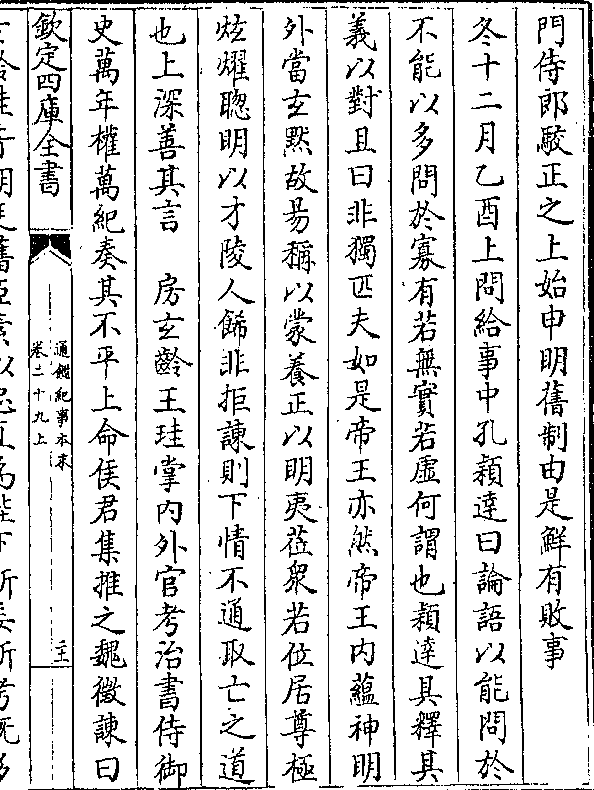 門侍郎駮正之上始申明舊制由是鮮有敗事
冬十二月乙酉上問給事中孔穎達曰論語以能問於
不能以多問於寡有若無實若虛何謂也穎達具釋其
義以對且曰非獨匹夫如是帝王亦然帝王内蘊神明
外當玄黙故易稱以蒙養正以明夷莅衆若位居尊極
炫燿聰明以才陵人餙非拒諫則下情不通取亡之道
也上深善其言　房玄齡王珪掌内外官考治書侍御
史萬年權萬紀奏其不平上命侯君集推之魏徵諫曰
欽定四庫全書
通鑑紀事本末
卷二十九上